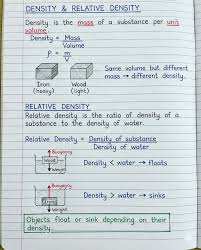 DENSITY & RELATIVE DENSITY
DENSITY
Density is the mass of a substance per unit
volume.
Density = Mass
Volume
ρ = m
V
Iron
(heavy)
Wood
(light)
Same volume but different
mass → different density.
RELATIVE DENSITY
Relative density is the ratio of density of a
substance to the density of water.
Relative Density = Density of substance
Density of water
Buoyancy
Wood
Weight
Density < water → floats
Buoyancy
Iron
Weight
Density > water → sinks
Objects float or sink depending on their
density.